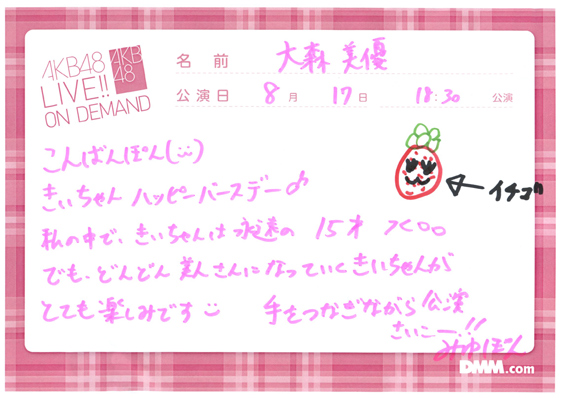 AKB48
LIVE!!
ON DEMAND
AKB
48
名前 大森美優
公演日 8月 17日 18:30 公演
こんばんぽん(¨̮)
きぃちゃん ハッピーバースデー♪
イチゴ
私の中で、きぃちゃんは永遠の 15才
でも、どんどん美人さんになっていくきぃちゃんが
とても楽しみです 手をつなぎながら公演
さいこー!!
みゆぽん
DMM.com